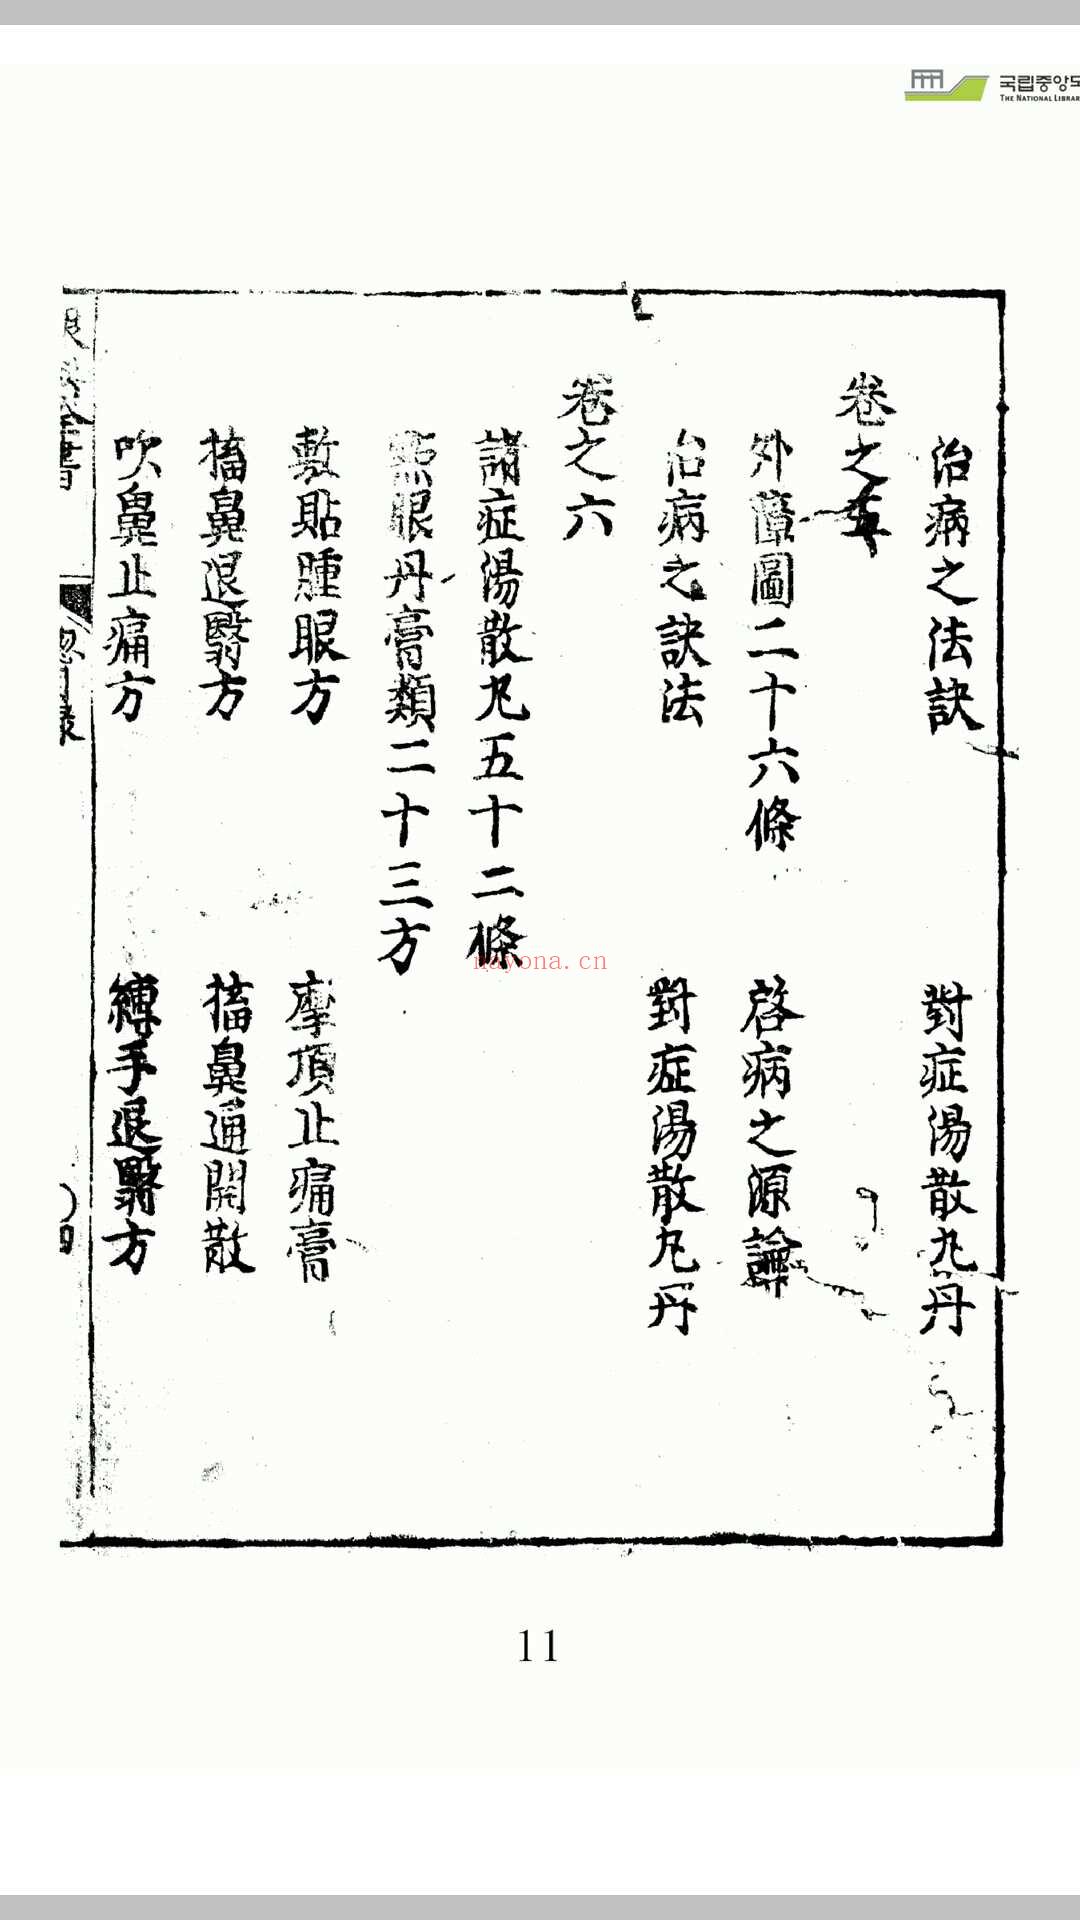 국립중앙도
THE NATIONAL LIBRAR
治病之法訣　對症湯散丸丹
卷之五
外障圖二十六條　啓病之源論
治病之訣法　對症湯散丸丹
卷之六
諸症湯散丸五十二條
眼丹膏類二十三方
敷貼腫眼方　摩頂止痛膏
搐鼻退翳方　搐鼻通關散
吹鼻止痛方　縛手退翳方
nayona.cn
11